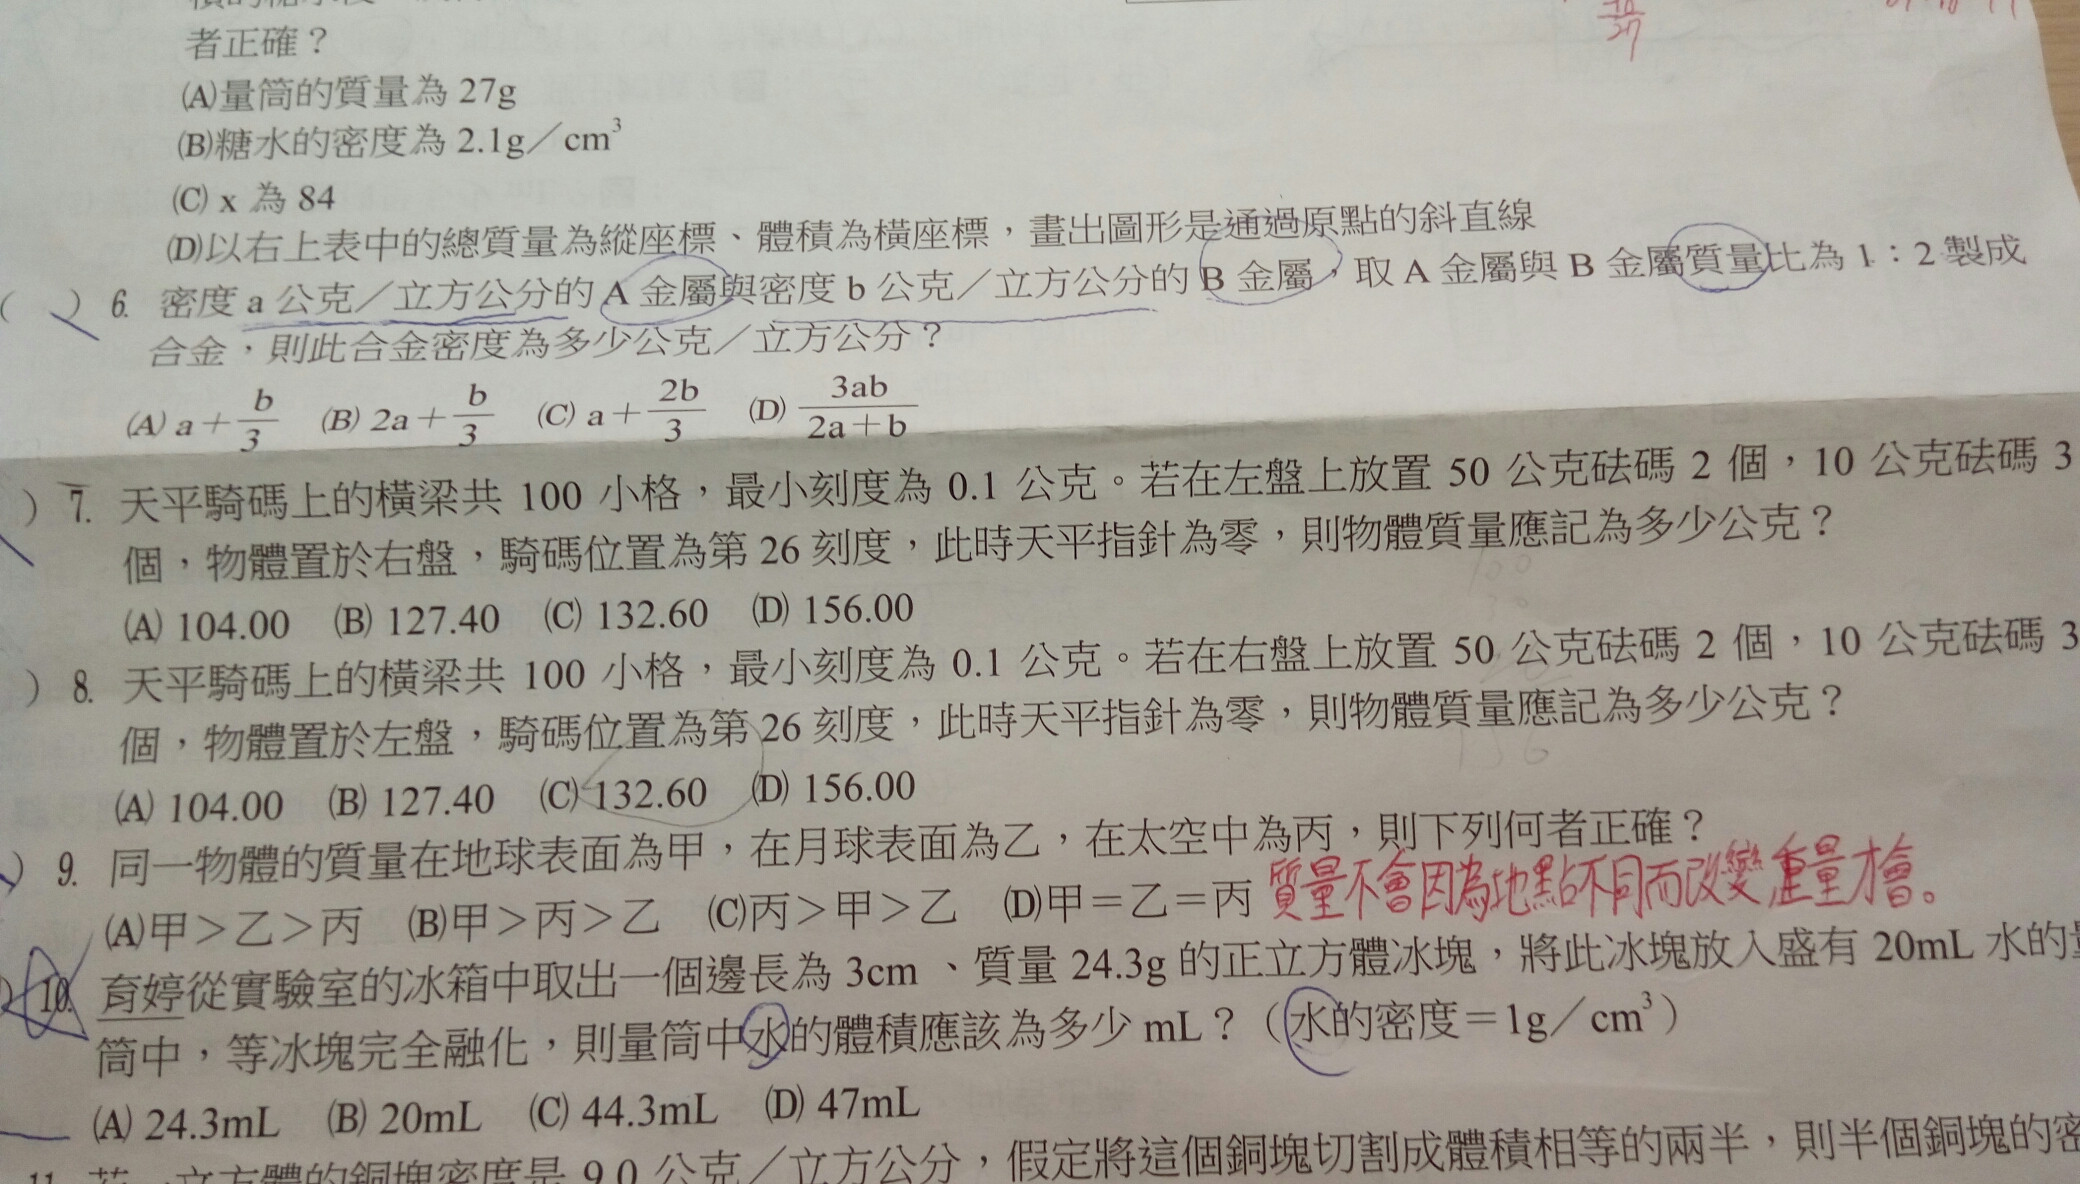 者正確？
(A)量筒的質量為 27g
(B)糖水的密度為 2.1g／cm³
(C) x 為 84
(D)以右上表中的總質量為縱座標、體積為橫座標，畫出圖形是通過原點的斜直線
( ) 6. 密度 a 公克／立方公分的 A 金屬與密度 b 公克／立方公分的 B 金屬，取 A 金屬與 B 金屬質量比為 1：2 製成
合金，則此合金密度為多少公克／立方公分？
(A) a＋b/3 (B) 2a＋b/3 (C) a＋2b/3 (D) 3ab/2a＋b
) 7. 天平騎碼上的橫梁共 100 小格，最小刻度為 0.1 公克。若在左盤上放置 50 公克砝碼 2 個，10 公克砝碼 3
個，物體置於右盤，騎碼位置為第 26 刻度，此時天平指針為零，則物體質量應記為多少公克？
(A) 104.00 (B) 127.40 (C) 132.60 (D) 156.00
) 8. 天平騎碼上的橫梁共 100 小格，最小刻度為 0.1 公克。若在右盤上放置 50 公克砝碼 2 個，10 公克砝碼 3
個，物體置於左盤，騎碼位置為第 26 刻度，此時天平指針為零，則物體質量應記為多少公克？
(A) 104.00 (B) 127.40 (C) 132.60 (D) 156.00
) 9. 同一物體的質量在地球表面為甲，在月球表面為乙，在太空中為丙，則下列何者正確？
(A)甲＞乙＞丙 (B)甲＞丙＞乙 (C)丙＞甲＞乙 (D)甲＝乙＝丙 質量不會因為地點不同而改變重量才會。
) 10. 育婷從實驗室的冰箱中取出一個邊長為 3cm 、質量 24.3g 的正立方體冰塊，將此冰塊放入盛有 20mL 水的
筒中，等冰塊完全融化，則量筒中水的體積應該為多少 mL？（水的密度＝1g／cm³）
(A) 24.3mL (B) 20mL (C) 44.3mL (D) 47mL
立方體的銅塊密度是 9.0 公克／立方公分，假定將這個銅塊切割成體積相等的兩半，則半個銅塊的密